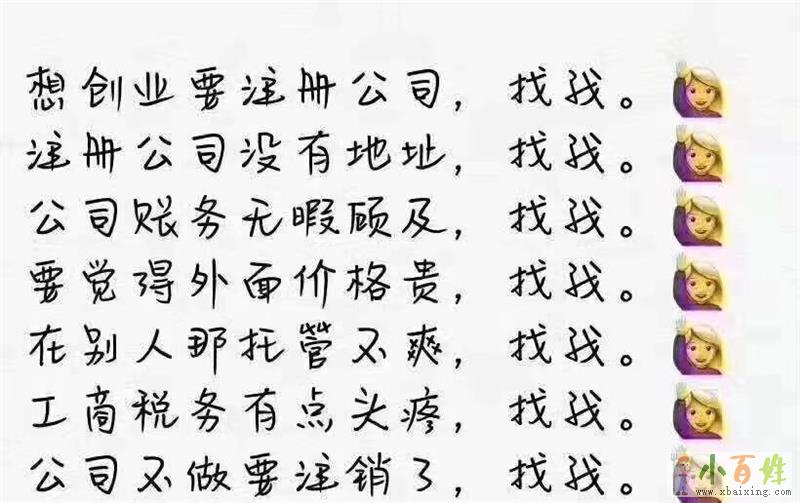 想创业要注册公司，找我。
注册公司没有地址，找我。
公司账务无暇顾及，找我。
要觉得外面价格贵，找我。
在别人那托营不爽，找我。
工商税务有点头疼，找我。
公司不做要注销了，找我。
小百姓
www.xbaixing.com